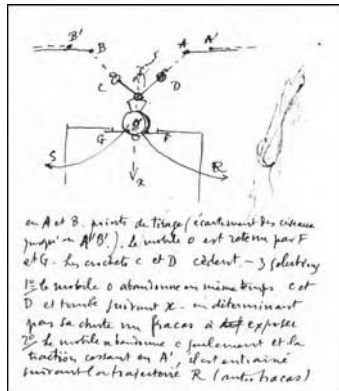 B'
B
A
A'
C
D
G
F
S
R
x
en A et B. points de tirage (écartement des ciseaux
jusqu'en A'B'). Le mobile o est retenu par F
et G. Les crochets C et D cèdent. – 3 solutions
1° le mobile o abandonne en même temps C et
D et tombe suivant x. en déterminant
par sa chute un fracas à exposer
2° Le mobile abandonne C seulement et la
traction cessant en A', il est entraîné
suivant la trajectoire R (autre fracas)